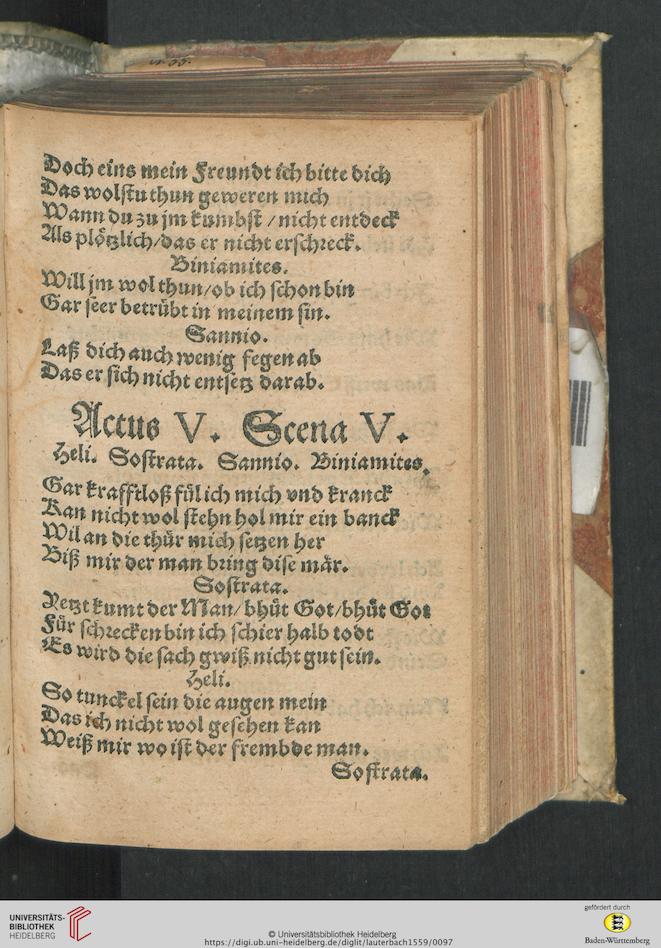 Doch eins mein Freundt ich bitte dich
Das wolstu thun geweren mich
Wann du zu jm kumbst / nicht entdeck
Als plötzlich/das er nicht erschreck.
Biniamites.
Will jm wol thun/ob ich schon bin
Gar seer betrübt in meinem sin.
Sannio.
Laß dich auch wenig fegen ab
Das er sich nicht entsetz darab.
Actus V. Scena V.
Heli. Sostrata. Sannio. Biniamites.
Gar krafftloß fül ich mich vnd kranck
Kan nicht wol stehn hol mir ein banck
Wil an die thür mich setzen her
Biß mir der man bring dise mär.
Sostrata.
Yetzt kumt der Man/ bhüt Got/bhüt Got
Für schrecken bin ich schier halb todt
Es wird die sach gwiß nicht gut sein.
Heli.
So tunckel sein die augen mein
Das ich nicht wol gesehen kan
Weiß mir wo ist der frembde man.
Sostrata.
UNIVERSITÄTS-
BIBLIOTHEK
HEIDELBERG
© Universitätsbibliothek Heidelberg
https://digi.ub.uni-heidelberg.de/diglit/lauterbach1559/0097
gefördert durch
Baden-Württemberg